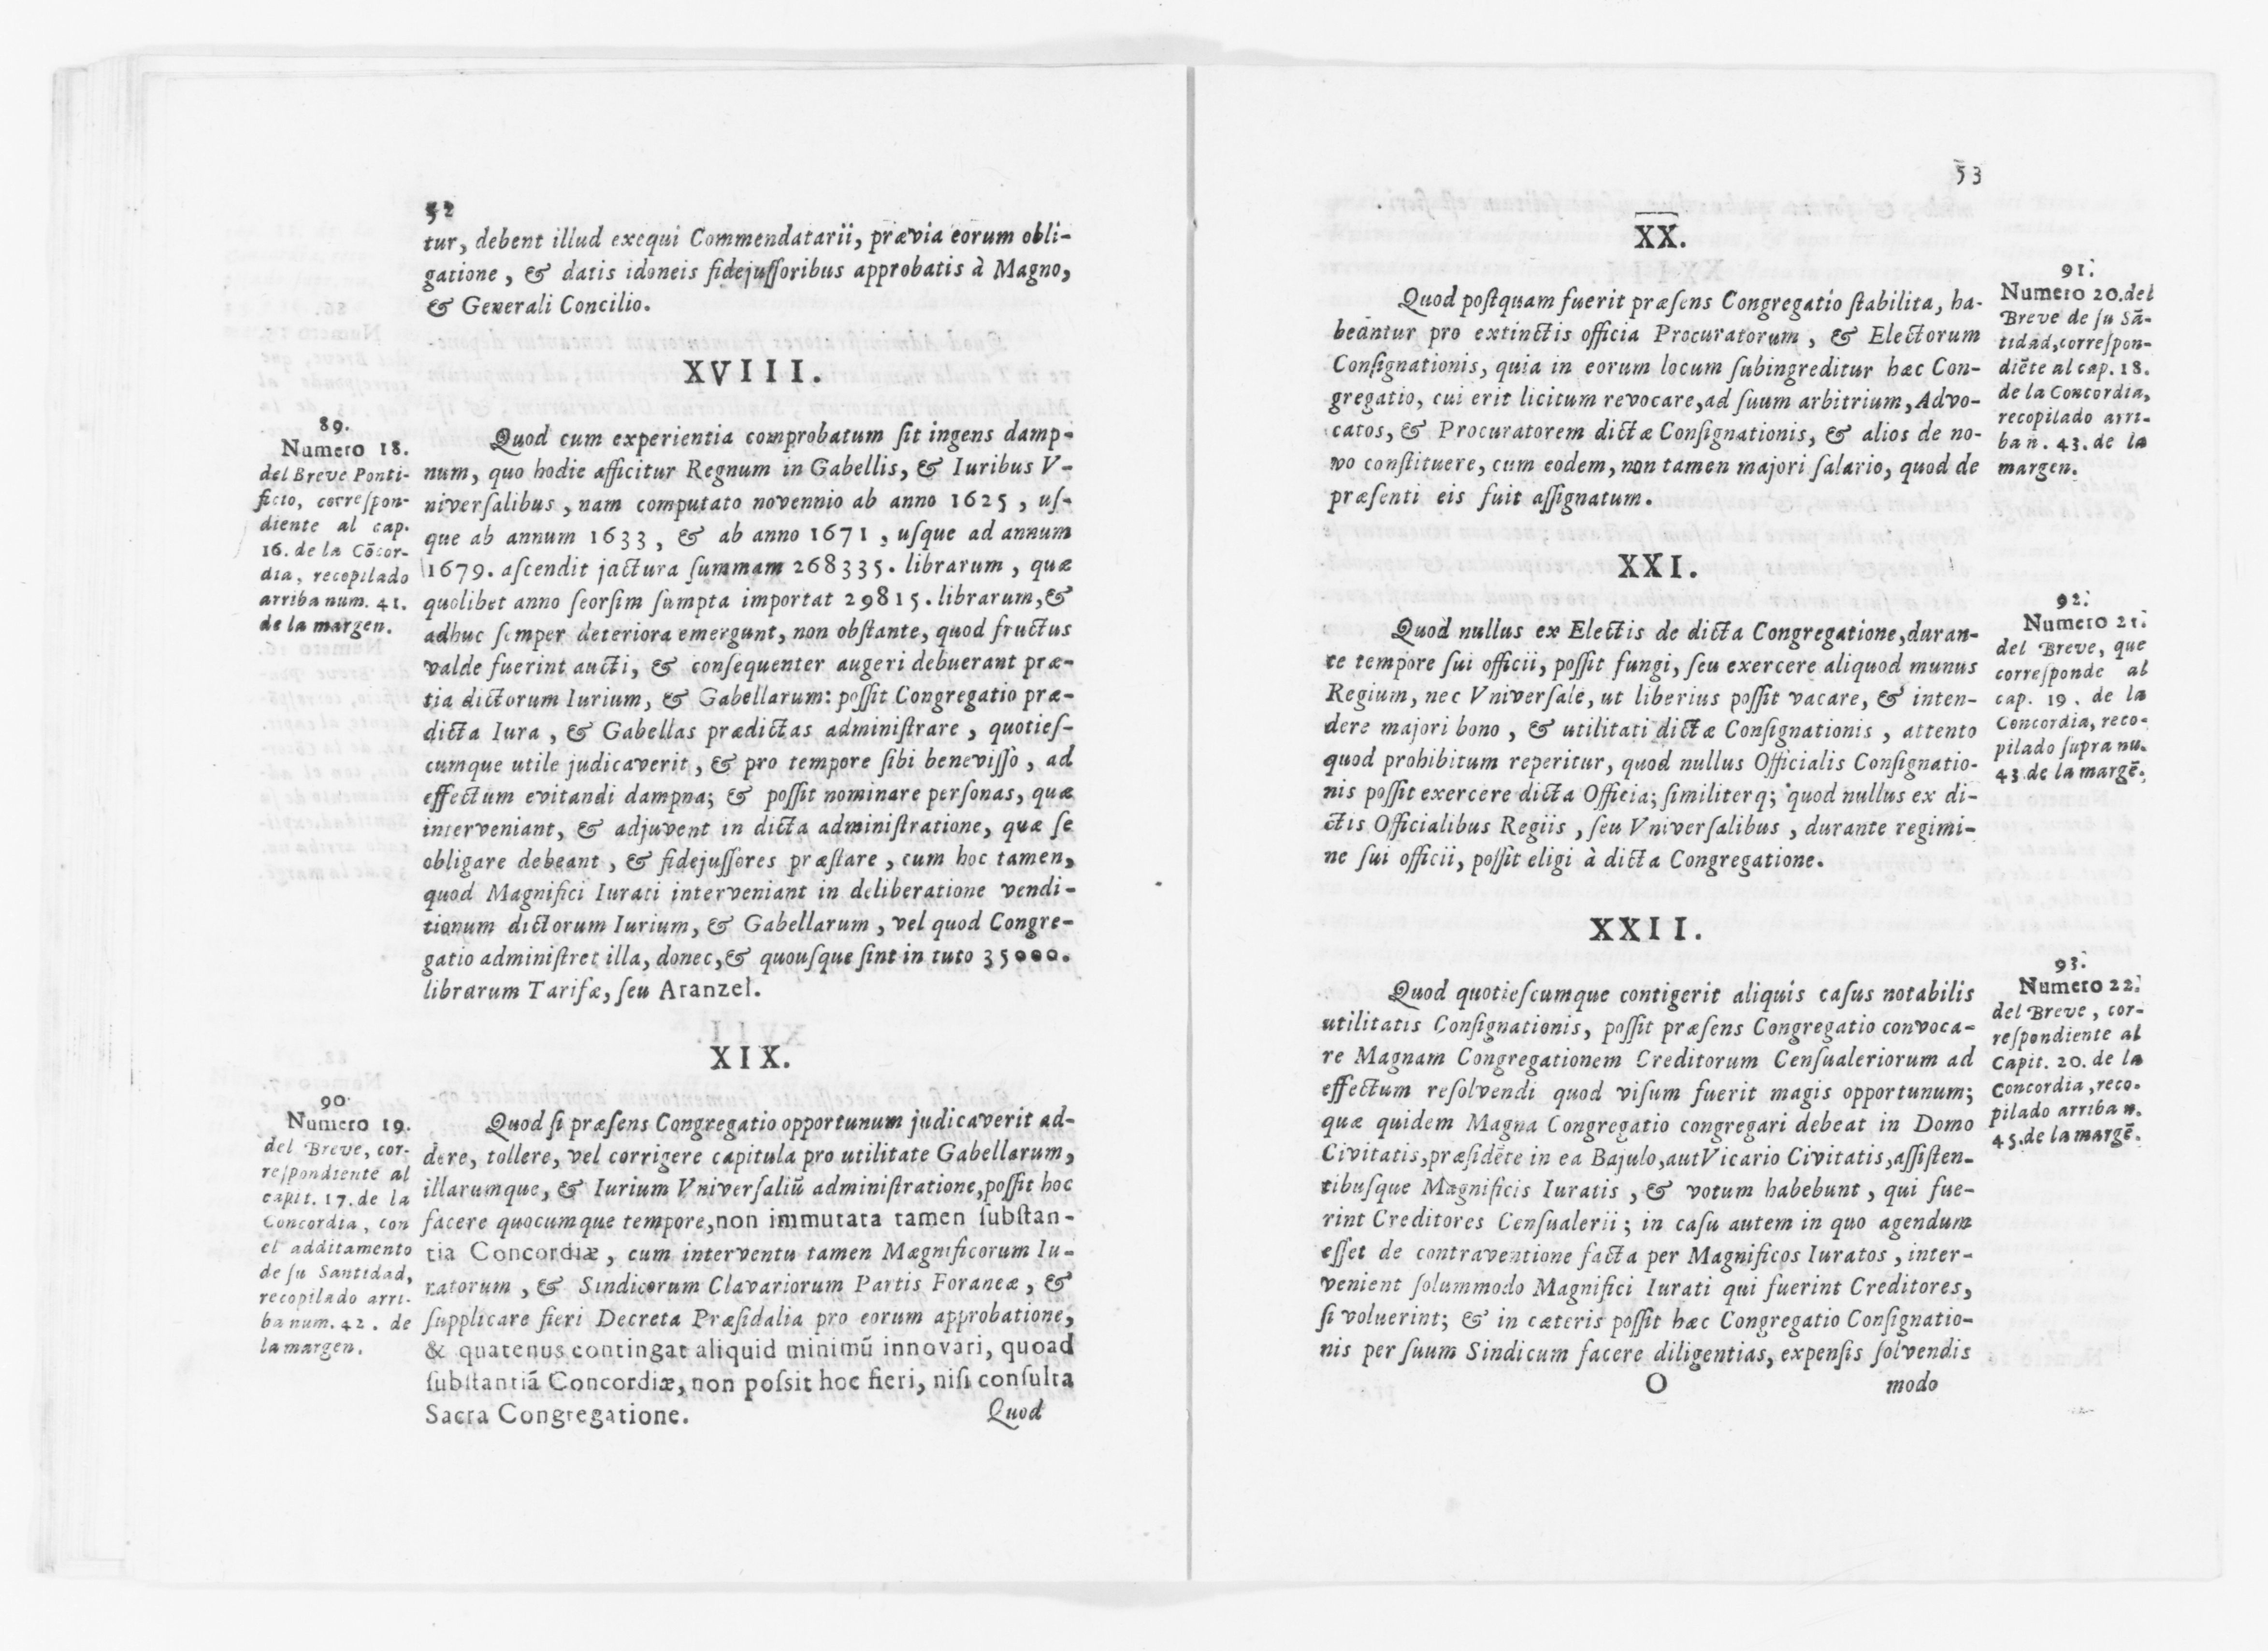 52
tur, debent illud exequi Commendatarii, prævia eorum obli-
gatione, & datis idoneis fidejuſſoribus approbatis à Magno,
& Generali Concilio.
XVIII.
89.
Numero 18.
del Breve Ponti-
ficio, correſpon-
diente al cap.
16. de la Cōcor-
dia, recopilado
arriba num. 41.
de la margen.
Quod cum experientia comprobatum ſit ingens damp-
num, quo hodie afficitur Regnum in Gabellis, & Iuribus V-
niverſalibus, nam computato novennio ab anno 1625, uſ-
que ab annum 1633, & ab anno 1671, uſque ad annum
1679. aſcendit jactura ſummam 268335. librarum, quæ
quolibet anno ſeorſim ſumpta importat 29815. librarum, &
adhuc ſemper deteriora emergunt, non obſtante, quod fructus
valde fuerint aucti, & conſequenter augeri debuerant præ-
tia dictorum Iurium, & Gabellarum: poſſit Congregatio præ-
dicta Iura, & Gabellas prædictas adminiſtrare, quotieſ-
cumque utile judicaverit, & pro tempore ſibi beneviſſo, ad
effectum evitandi dampna; & poſſit nominare perſonas, quæ
interveniant, & adjuvent in dicta adminiſtratione, quæ ſe
obligare debeant, & fidejuſſores præſtare, cum hoc tamen,
quod Magnifici Iurati interveniant in deliberatione vendi-
tionum dictorum Iurium, & Gabellarum, vel quod Congre-
gatio adminiſtret illa, donec, & quouſque ſint in tuto 35000.
librarum Tarifæ, ſeu Aranzel.
XIX.
90.
Numero 19.
del Breve, cor-
reſpondiente al
capit. 17. de la
Concordia, con
el additamento
de ſu Santidad,
recopilado arri-
ba num. 42. de
la margen.
Quod ſi præſens Congregatio opportunum judicaverit ad-
dere, tollere, vel corrigere capitula pro utilitate Gabellarum,
illarumque, & Iurium Vniverſaliū adminiſtratione, poſſit hoc
facere quocumque tempore, non immutata tamen ſubſtan-
tia Concordiæ, cum interventu tamen Magnificorum Iu-
ratorum, & Sindicorum Clavariorum Partis Foraneæ, &
ſupplicare fieri Decreta Præſidalia pro eorum approbatione,
& quatenus contingat aliquid minimū innovari, quoad
ſubſtantiā Concordiæ, non poſsit hoc fieri, niſi conſulta
Sacra Congregatione.
Quod
53
XX.
91.
Numero 20. del
Breve de ſu Sā-
tidad, correſpon-
diēte al cap. 18.
de la Concordia,
recopilado arri-
ba n. 43. de la
margen.
Quod poſtquam fuerit præſens Congregatio ſtabilita, ha-
beantur pro extinctis officia Procuratorum, & Electorum
Conſignationis, quia in eorum locum ſubingreditur hæc Con-
gregatio, cui erit licitum revocare, ad ſuum arbitrium, Advo-
catos, & Procuratorem dictæ Conſignationis, & alios de no-
vo conſtituere, cum eodem, non tamen majori ſalario, quod de
præſenti eis fuit aſſignatum.
XXI.
92.
Numero 21.
del Breve, que
correſponde al
cap. 19. de la
Concordia, reco-
pilado ſupra nu.
43. de la margē.
Quod nullus ex Electis de dicta Congregatione, duran-
te tempore ſui officii, poſſit fungi, ſeu exercere aliquod munus
Regium, nec Vniverſale, ut liberius poſſit vacare, & inten-
dere majori bono, & utilitati dictæ Conſignationis, attento
quod prohibitum reperitur, quod nullus Officialis Conſignatio-
nis poſſit exercere dicta Officia; ſimiliterq; quod nullus ex di-
ctis Officialibus Regiis, ſeu Vniverſalibus, durante regimi-
ne ſui officii, poſſit eligi à dicta Congregatione.
XXII.
93.
Numero 22.
del Breve, cor-
reſpondiente al
Capit. 20. de la
Concordia, reco-
pilado arriba n.
45. de la margē.
Quod quotieſcumque contigerit aliquis caſus notabilis
utilitatis Conſignationis, poſſit præſens Congregatio convoca-
re Magnam Congregationem Creditorum Cenſualeriorum ad
effectum reſolvendi quod viſum fuerit magis opportunum;
quæ quidem Magna Congregatio congregari debeat in Domo
Civitatis, præſidēte in ea Bajulo, aut Vicario Civitatis, aſſiſten-
tibuſque Magnificis Iuratis, & votum habebunt, qui fue-
rint Creditores Cenſualerii; in caſu autem in quo agendum
eſſet de contraventione facta per Magnificos Iuratos, inter-
venient ſolummodo Magnifici Iurati qui fuerint Creditores,
ſi voluerint; & in cæteris poſſit hæc Congregatio Conſignatio-
nis per ſuum Sindicum facere diligentias, expenſis ſolvendis
O
modo